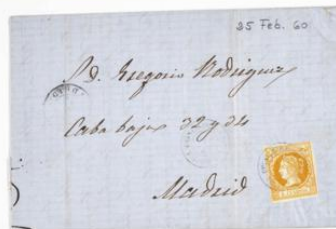 25 Feb. 60
S. D. Gregorio Rodriguez
Caba baja 32 y 34
Madrid